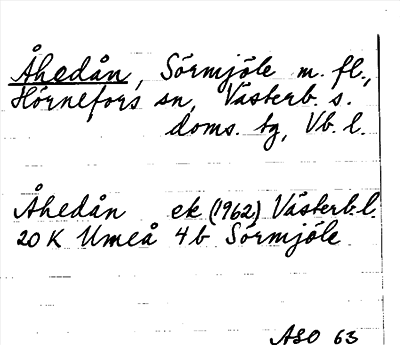 Åhedån, Sörmjöle m. fl.,
Hörnefors sn, Västerb. s.
doms. tg, Vb. l.
Åhedån ek (1962) Västerb. l.
20 K Umeå 4 b Sörmjöle
ASO 63